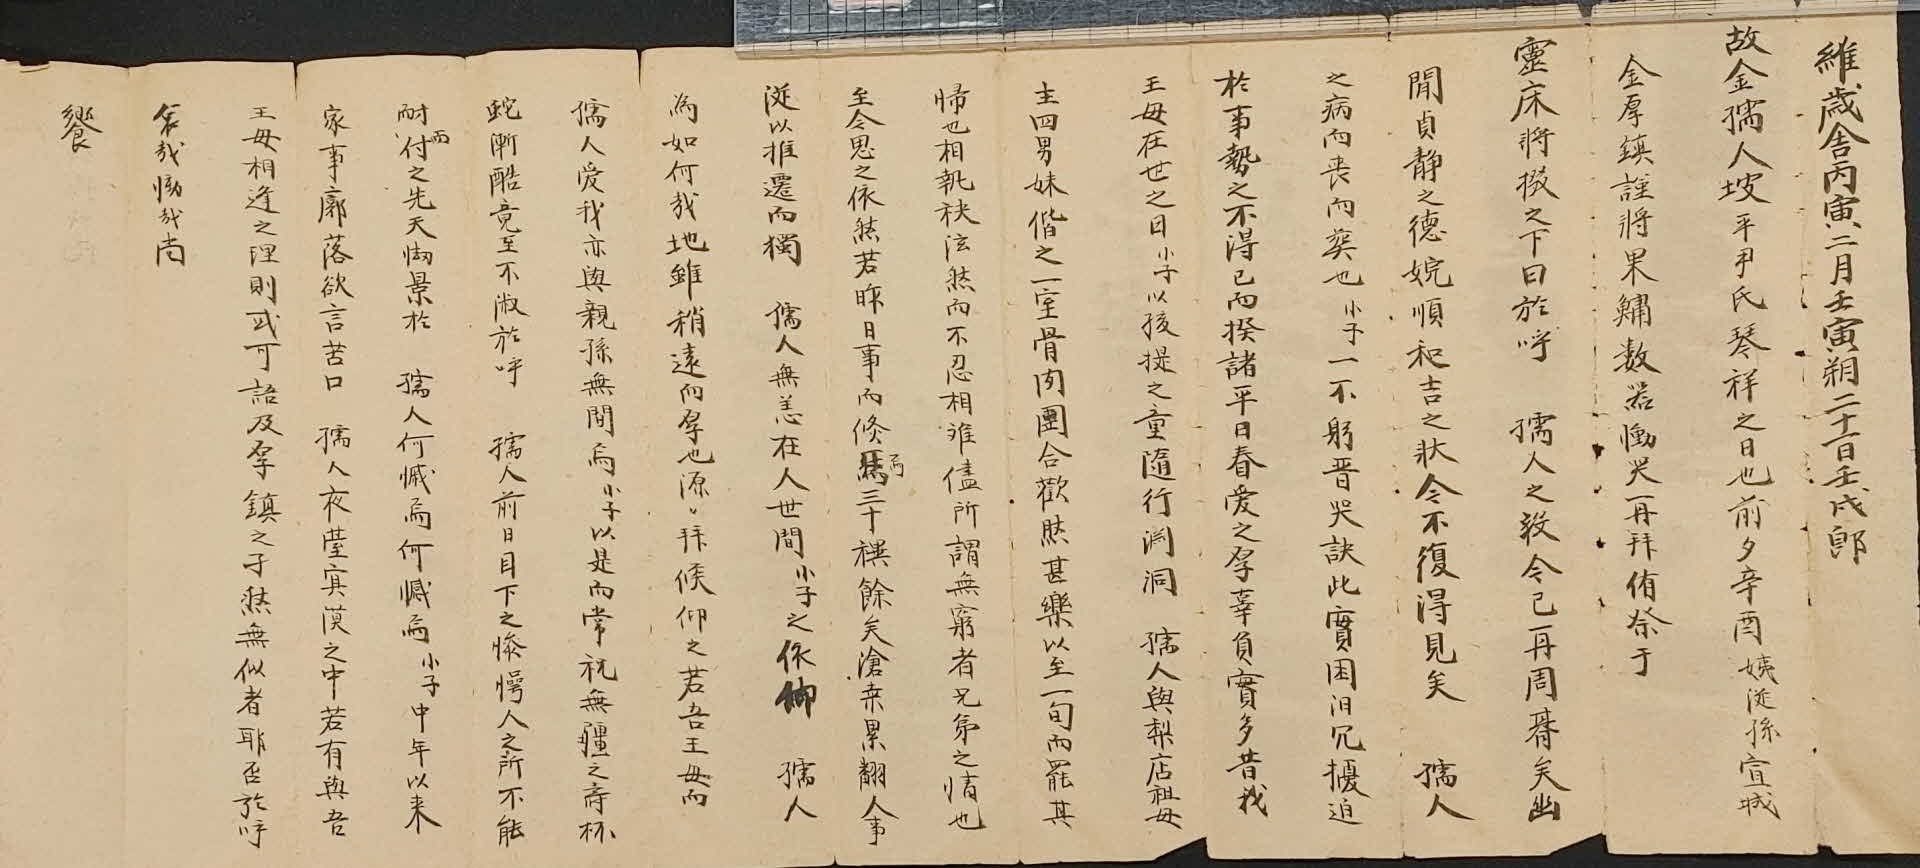 維歲舍丙寅二月壬寅朔二十一日壬戌卽
故金孺人坡平尹氏琴祥之日也前夕辛酉姨從孫宣城
金厚鎮謹將果鱐数器慟哭再拜侑祭于
靈床將撥之下曰於呼 孺人之歿今已再周朞矣幽
閒貞静之德婉順和吉之狀今不復得見矣 孺人
之病而喪而葬也小子一不躬晋哭訣此實困汨冗擾迫
於事勢之不得已而揆諸平日眷愛之孚辜負實多昔我
王母在世之日小子以孩提之童隨行渕洞 孺人與梨店祖母
主四男妹偕之一室骨肉團合歡然甚樂以至一旬而罷其
帰也相執袂泫然而不忍相难儘所謂無窮者兄弟之情也
至今思之依然若昨日事而倏焉三十禩餘矣滄桒累翻人事
從以推遷而獨 孺人無恙在人世間小子之依仰 孺人
為如何哉地雖稍遠而孚也源〻拜候仰之若吾王母而
孺人愛我亦與親孫無間焉小子以是而常祝無疆之壽杯
蛇漸酷竟至不淑於呼 孺人前日目下之慘愕人之所不能
耐而付之先天慟景於 孺人何慽焉何憾焉小子中年以来
家事廓落欲言苦口 孺人夜臺寞漠之中若有與吾
王母相逢之理則或可語及孚鎮之子然無似者耶否於呼
哀哉慟哉尚
饗